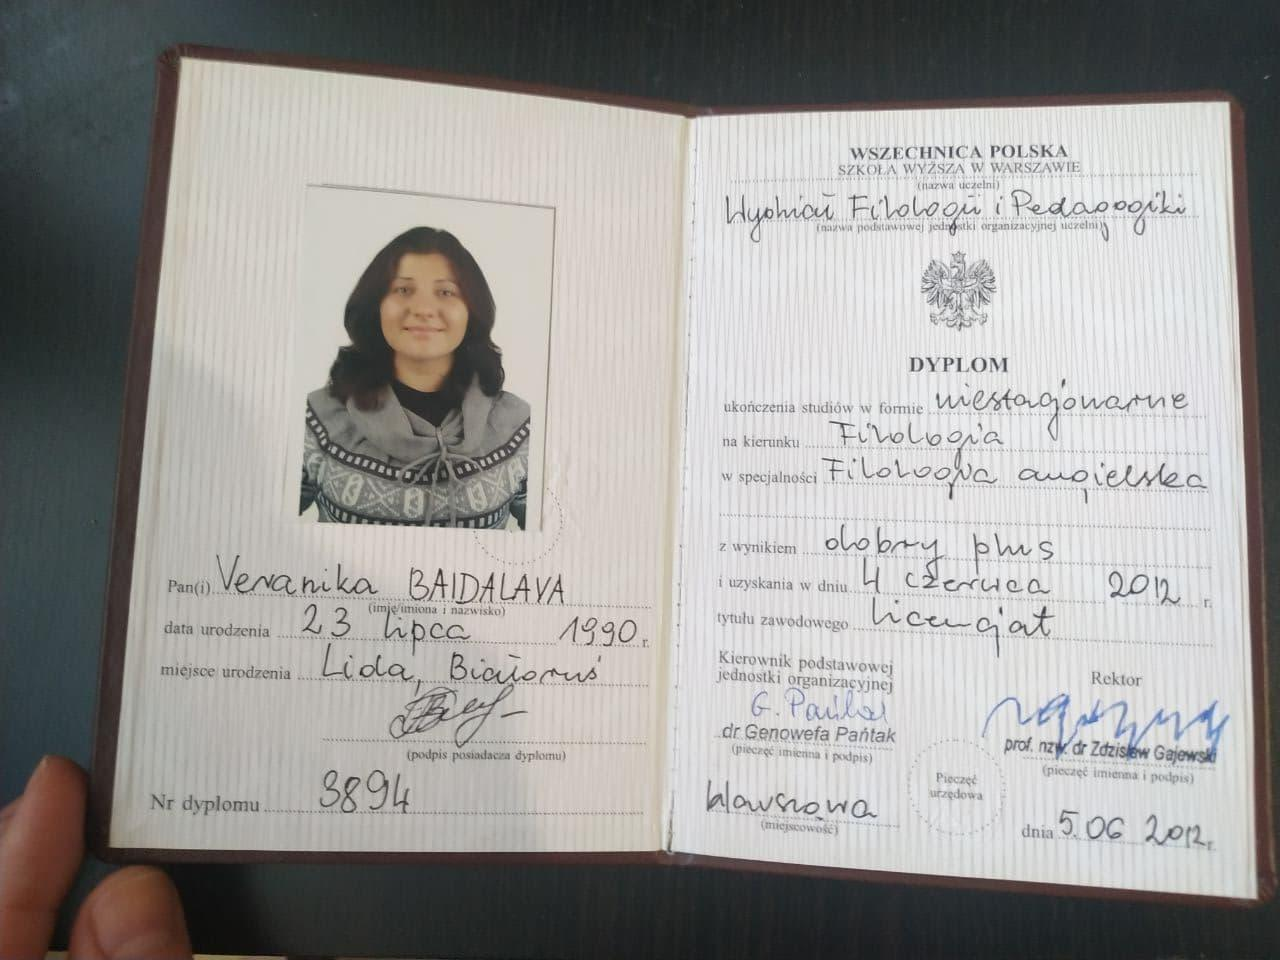 Pan(i) Veranika BAIDALAVA
(imię/imiona i nazwisko)
data urodzenia 23 lipca 1990 r.
miejsce urodzenia Lida, Białoruś
(podpis posiadacza dyplomu)
Nr dyplomu 3894
WSZECHNICA POLSKA
SZKOŁA WYŻSZA W WARSZAWIE
(nazwa uczelni)
Wydział Filologii i Pedagogiki
(nazwa podstawowej jednostki organizacyjnej uczelni)
DYPLOM
ukończenia studiów w formie niestacjonarne
na kierunku Filologia
w specjalności Filologia angielska
z wynikiem dobry plus
i uzyskania w dniu 4 czerwca 2012 r.
tytułu zawodowego licencjat
Kierownik podstawowej
jednostki organizacyjnej
G. Pańtak
dr Genowefa Pańtak
(pieczęć imienna i podpis)
Rektor
prof. nzw. dr Zdzisław Gajewski
(pieczęć imienna i podpis)
Pieczęć
urzędowa
Warszawa
(miejscowość)
dnia 5.06 2012 r.